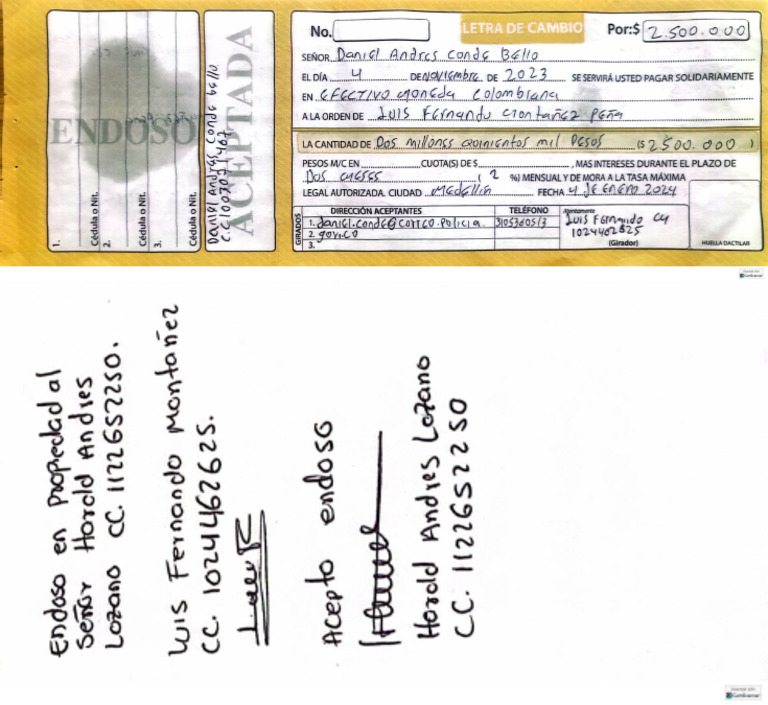 No.
LETRA DE CAMBIO
Por:$ 2.500.000
SEÑOR Daniel Andres Conde Bello
EL DÍA 4 DE Noviembre DE 2023 SE SERVIRÁ USTED PAGAR SOLIDARIAMENTE
EN EFECTIVO moneda Colombiana
A LA ORDEN DE Luis Fernando Montañez Peña
LA CANTIDAD DE Dos millones quinientos mil Pesos ($ 2500.000 )
PESOS M/C EN CUOTA(S) DE $ , MAS INTERESES DURANTE EL PLAZO DE
Dos meses ( 2 %) MENSUAL Y DE MORA A LA TASA MÁXIMA
LEGAL AUTORIZADA. CIUDAD Medellín FECHA 4 de ENERO 2024
GIRADOS
DIRECCIÓN ACEPTANTES TELÉFONO
1. daniel.conde@correo.policia.
2. gov.co
3.
Atentamente
Luis Fernando
(Girador)
HUELLA DACTILAR
ENDOSO
1.
Cédula o Nit.
2.
Cédula o Nit.
3.
Cédula o Nit.
ACEPTADA
Daniel Andres Conde bello
Endoso en propiedad al
Señor Harold Andres
Lozano CC. 1122652250.
Luis Fernando Montañez
CC. 1024462625.
Acepto endoso
Harold Andres Lozano
CC. 1122652250